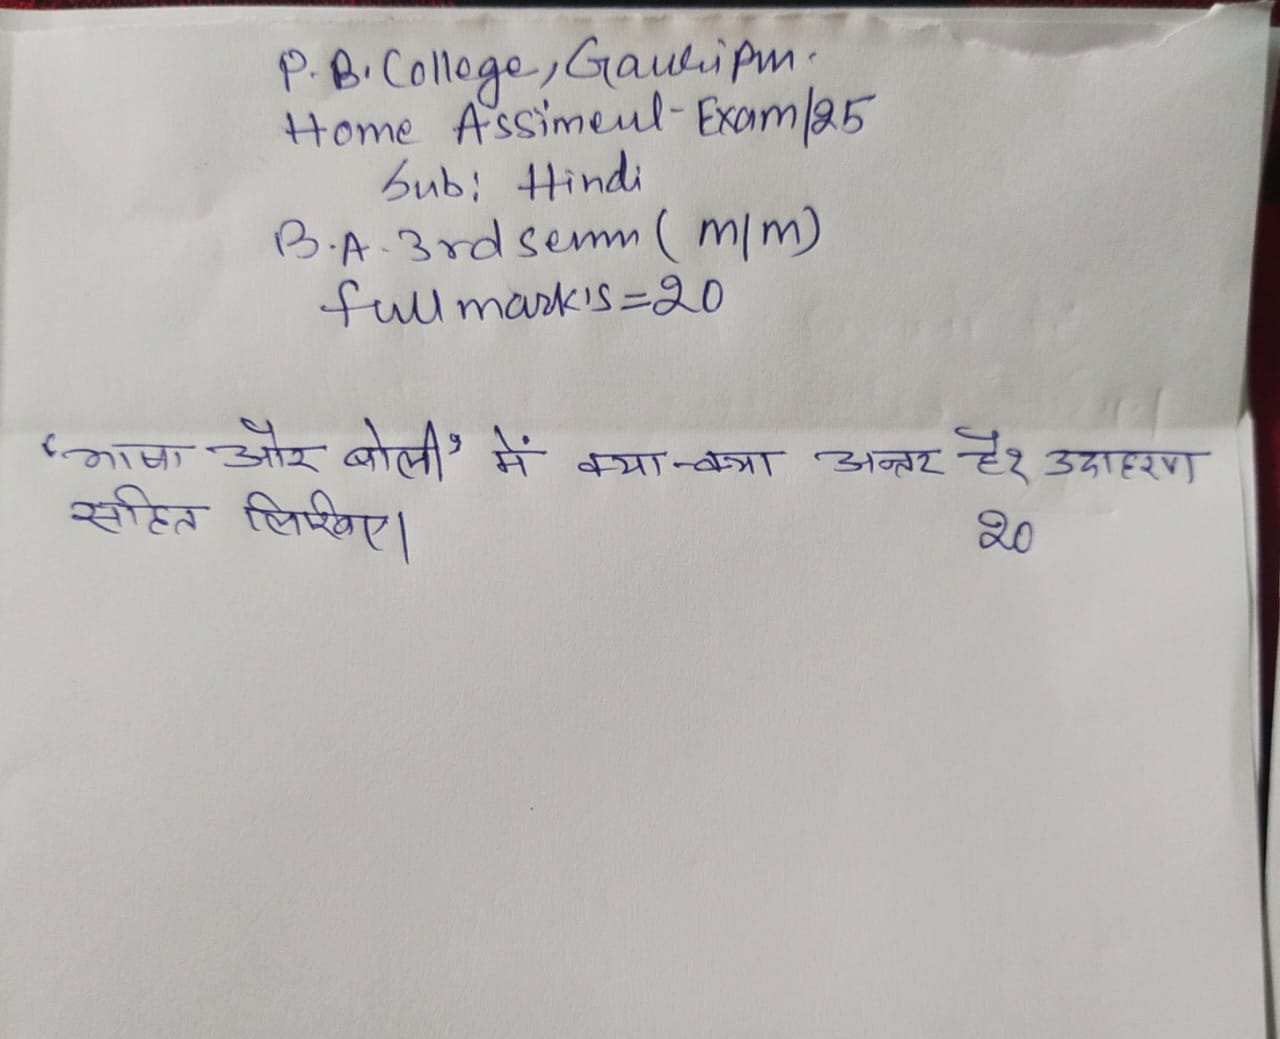 P. B. College, Gauripur.
Home Assiment - Exam/25
Sub: Hindi
B.A. 3rd semm ( m/m)
full mark's = 20
'भाषा और बोली' में क्या-क्या अन्तर है? उदाहरण
सहित लिखिए।
20